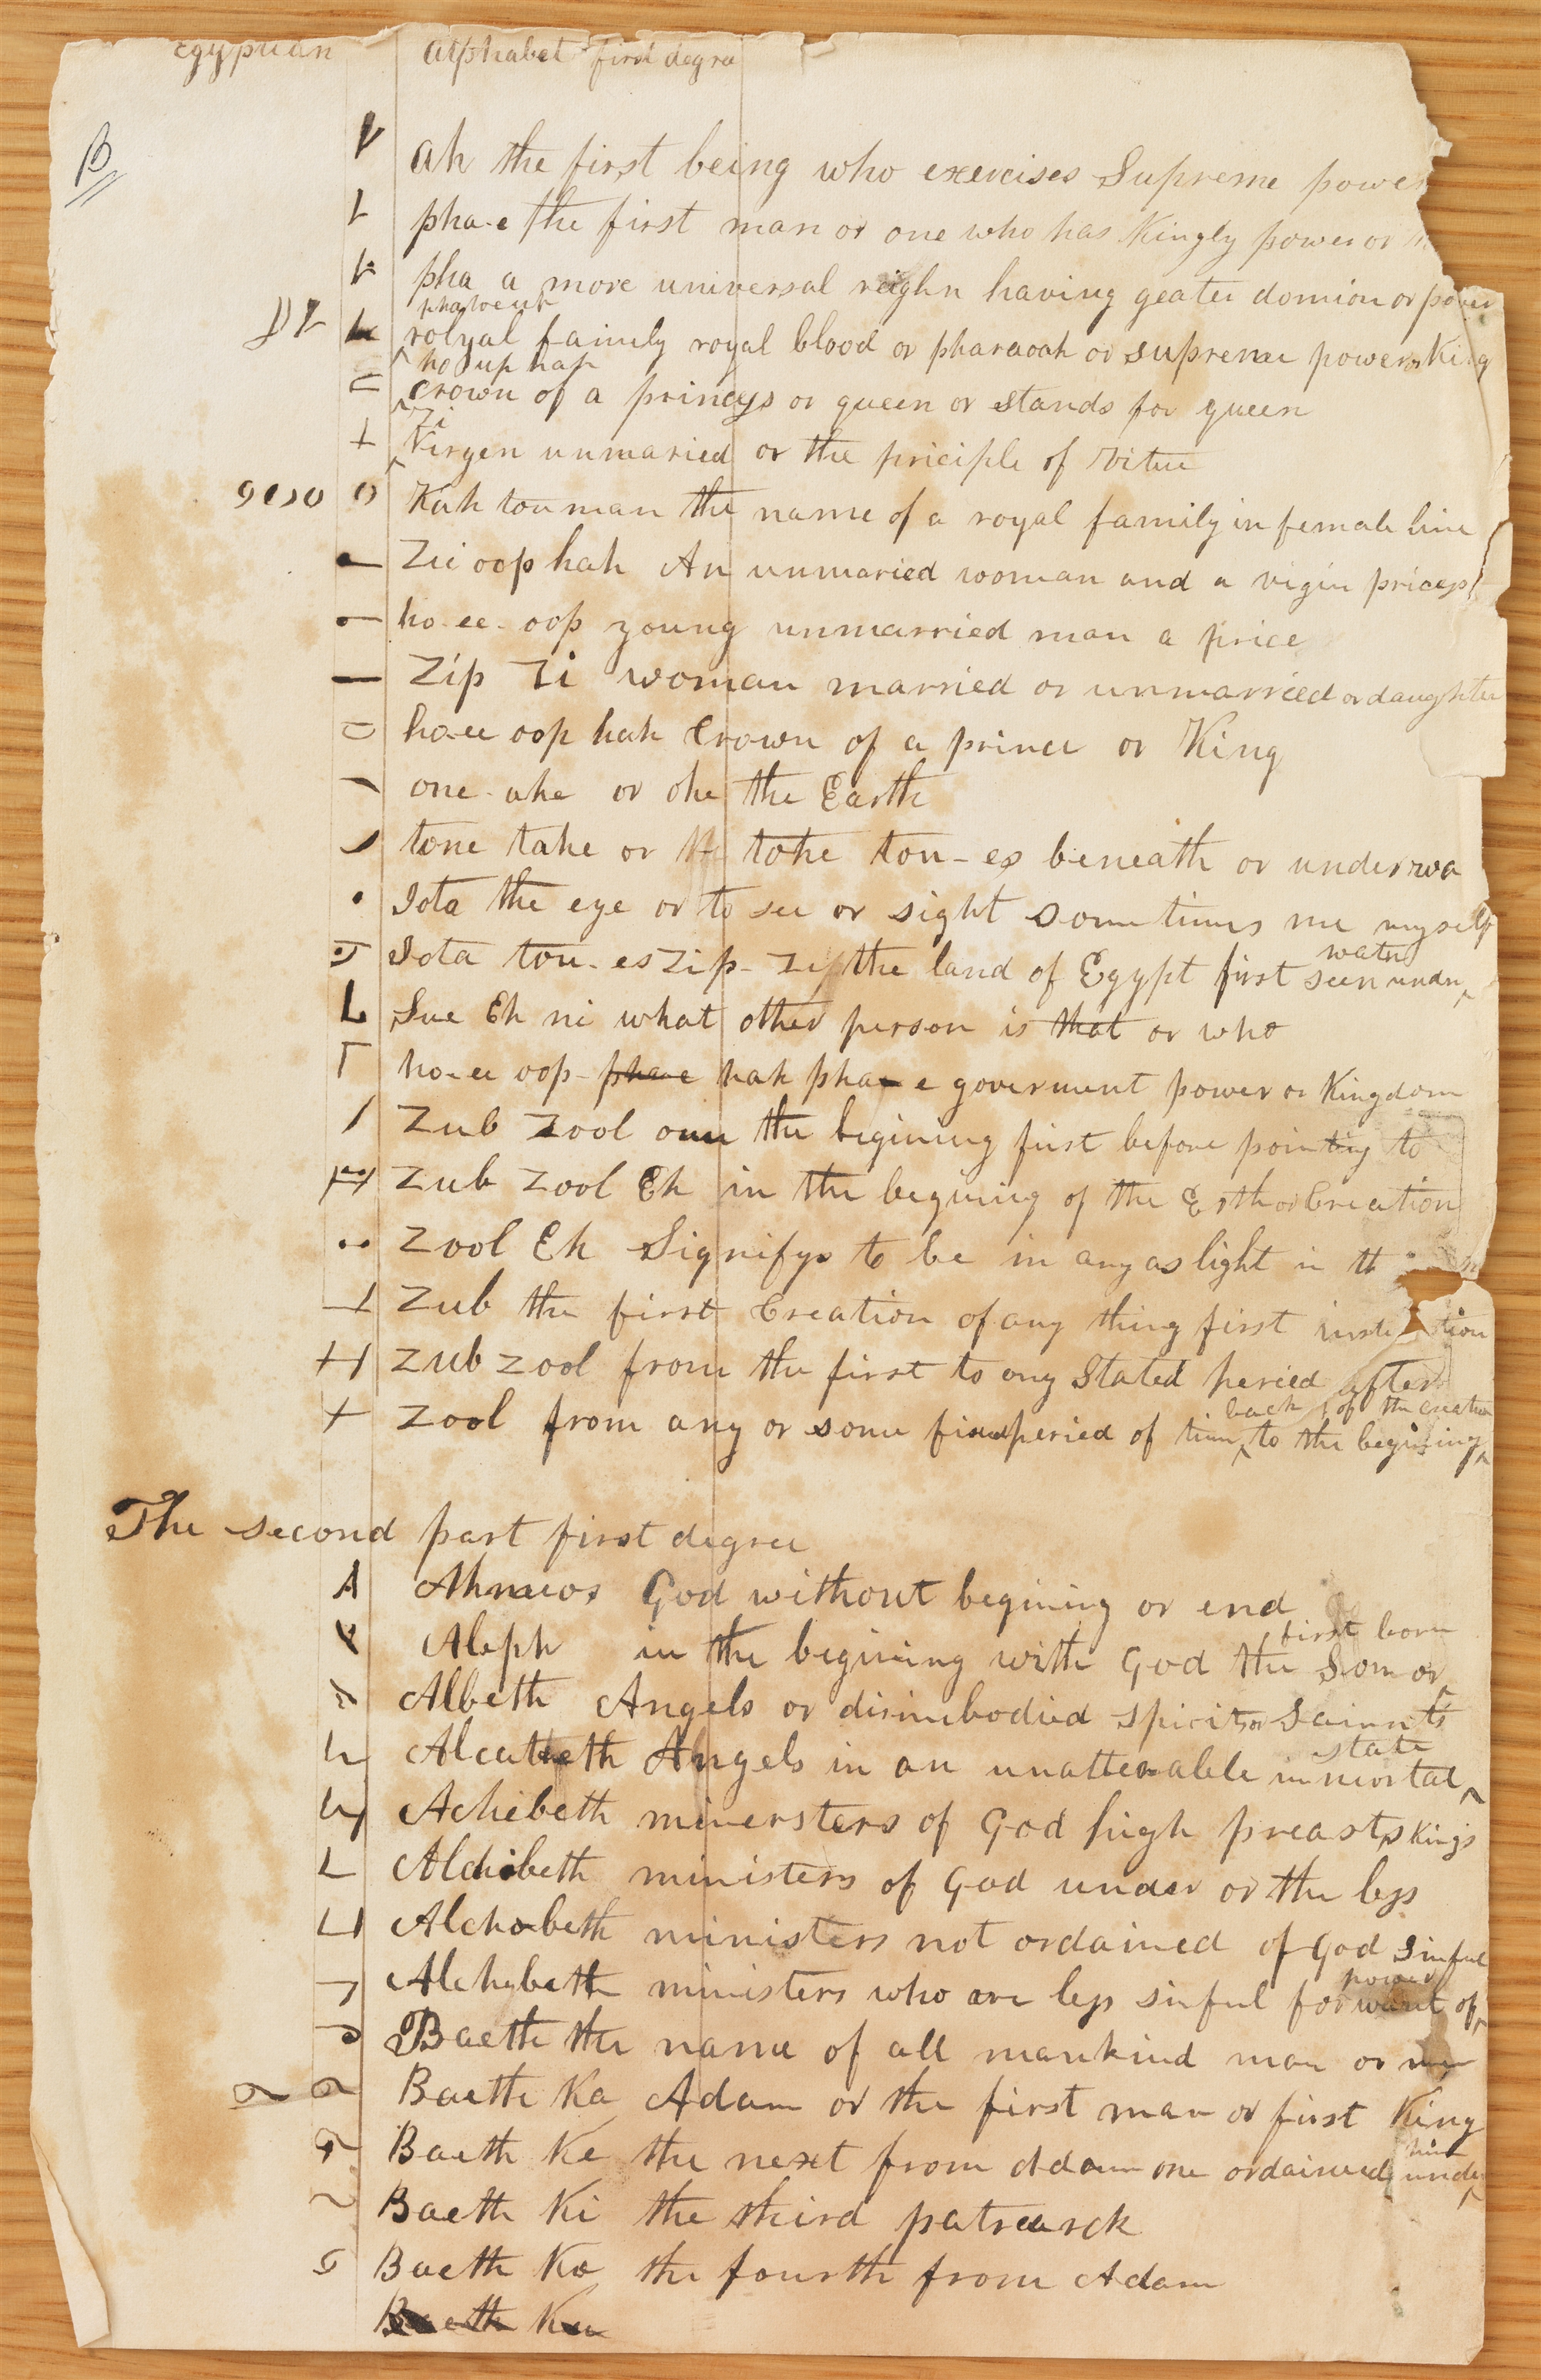 Egyptian alphabet first degree
B
ah the first being who exercises Supreme power
pha-e the first man or one who has Kingly power or
pha a more universal reighn having geater domion or power
phaho eup
rolyal family royal blood or pharaoah or supreme power or King
ho up hah
crown of a princess or queen or stands for queen
Zi
Virgen unmaried or the priciple of Vitue
Kah tou man the name of a royal family in female line
Zii oop hah An unmaried woman and a vigin pricess
ho-ee-oop young unmarried man a price
Zip Zi woman married or unmarried or daughter
ho-ee oop hah Crown of a prince or King
one-ahe or ohe the Earth
tone tahe or th tohe tou-es beneath or under wa
Iota the eye or to see or sight sometimes me myself
water
Iota tou-es Zip-Zip the land of Egypt first seen under
Sue Eh ni what other person is that or who
ho-ee oop-phae hah pha-e goverment power or Kingdom
Zub Zool oan the begining first before pointing to
Zub Zool Eh in the begining of the Erth or Creation
Zool Eh Signifys to be in any as light in th
Zub the first Creation of any thing first institution
Zub zool from the first to any Stated peried after
back of the creation
Zool from any or some fixed peried of time to the begining
The second part first degree
Ahmeos God without begining or end
first born
Aleph in the begining with God the Son or
Albeth Angels or disimbodied spirits or Saints
state
Alcabeth Angels in an unalterable immortal
Achebeth minersters of God high preasts Kings
Alchibeth ministers of God under or the less
Alchobeth ministers not ordained of God sinful
power
Alchybeth ministers who are less sinful for want of
Baeth the name of all mankind man or men
Baeth Ka Adam or the first man or first King
him
Baeth Ke the next from Adam one ordained under
Baeth Ki the third patrearck
Baeth Ko the fourth from Adam
Baeth Ku